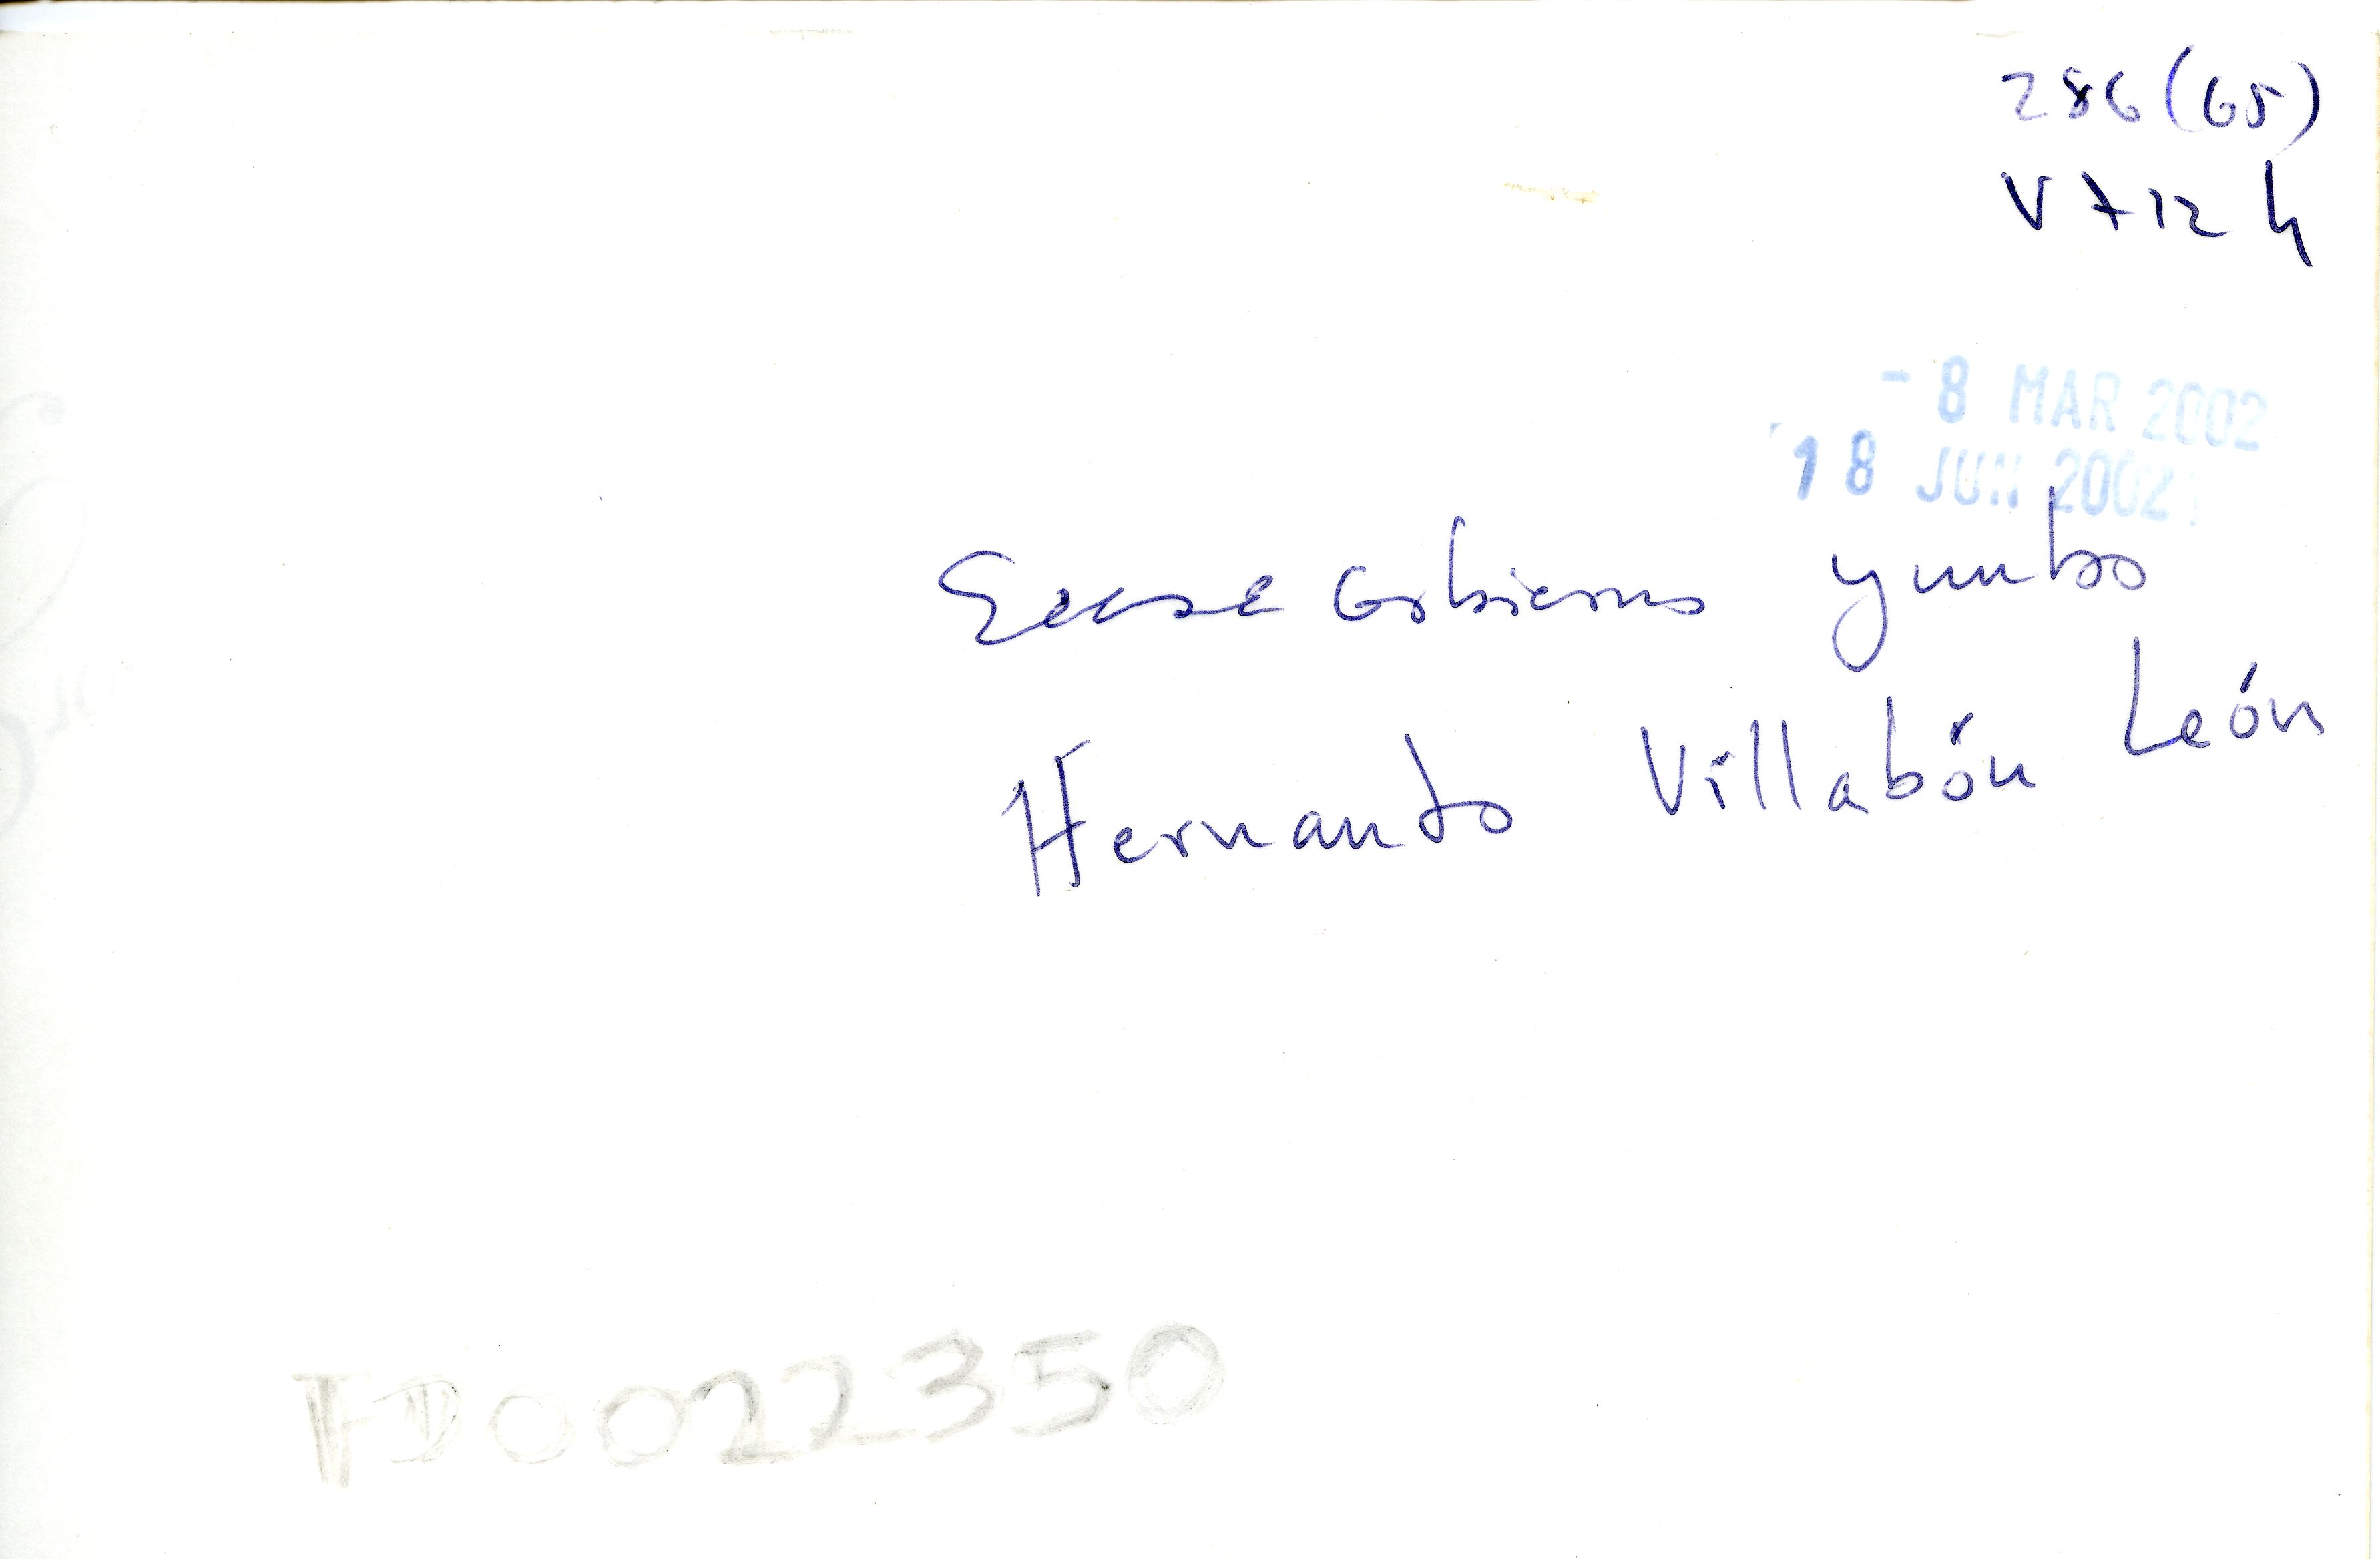 286 (65)
V712h
- 8 MAR 2002
18 JUN 2002
Gobierno Yumbo
Hernando Villabón León
FD0022350